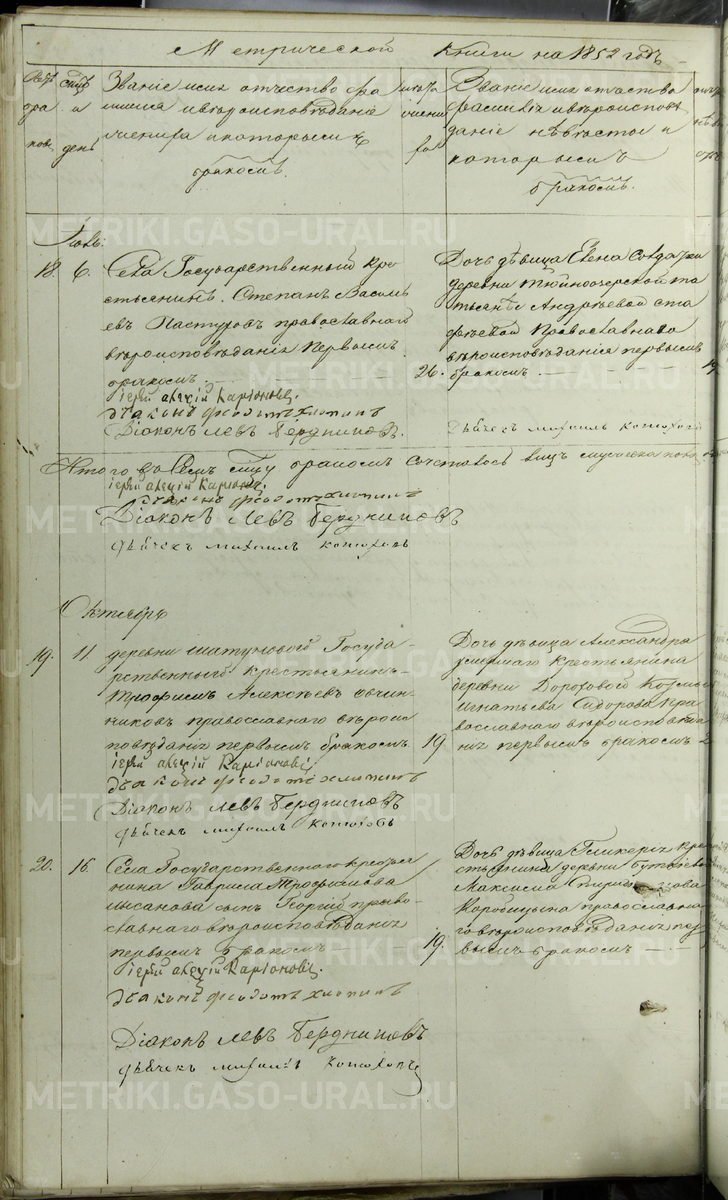 Метрической Книги на 1852 годъ
Званіе имя отчество фа
милія и вѣроисповѣданіе
жениха и которымъ
бракомъ.
Званіе имя отчество
фамилія и вѣроиспов
даніе невѣсты и
которымъ
бракомъ.
день
18. 6. Села Государственный кре
стьянинъ Степанъ Василь
евъ Пастуховъ православнаго
вѣроисповѣданія первымъ
бракомъ
іерей алеѯій Каріоновъ
діаконъ Ѳеодотъ хлопинъ
Діаконъ Левъ Бердниковъ.
Дочь дѣвица Елена
деревни
Андреевой
православнаго
вѣроисповѣданія первымъ
26. бракомъ
дьячекъ михаилъ конюховъ
Итого въ семъ бракомъ сочеталось
іерей алеѯій Каріоновъ
діаконъ Ѳеодотъ хлопинъ
Діаконъ Левъ Бердниковъ
дьячекъ михаилъ конюховъ
Октябрь
19. 11 деревни шатуновой Госуда
рственный крестьянинъ
Трофимъ Алексѣевъ овчин
никовъ православнаго вѣрои
повѣданія первымъ бракомъ
іерей алеѯій Каріоновъ
діаконъ Ѳеодотъ хлопинъ
Діаконъ Левъ Бердниковъ
дьячекъ михаилъ конюховъ
Дочь дѣвица Александра
умершаго крестьянина
деревни Дороховой Козьмы
игнатьева Сидорова пра
вославнаго вѣроисповѣда
19 нія первымъ бракомъ
20. 16. Села Государственнаго крестья
нина Гаврила Трофимова
сынъ Георгій право
славнаго вѣроисповѣданія
первымъ бракомъ
іерей алеѯій Каріоновъ
діаконъ Ѳеодотъ хлопинъ
Діаконъ Левъ Бердниковъ
дьячекъ михаилъ конюховъ
Дочь дѣвица Гликерія кре
стьянина деревни
Максима
Коробицына православна
го вѣроисповѣданія пер
19. вымъ бракомъ
METRIKI.GASO-URAL.RU